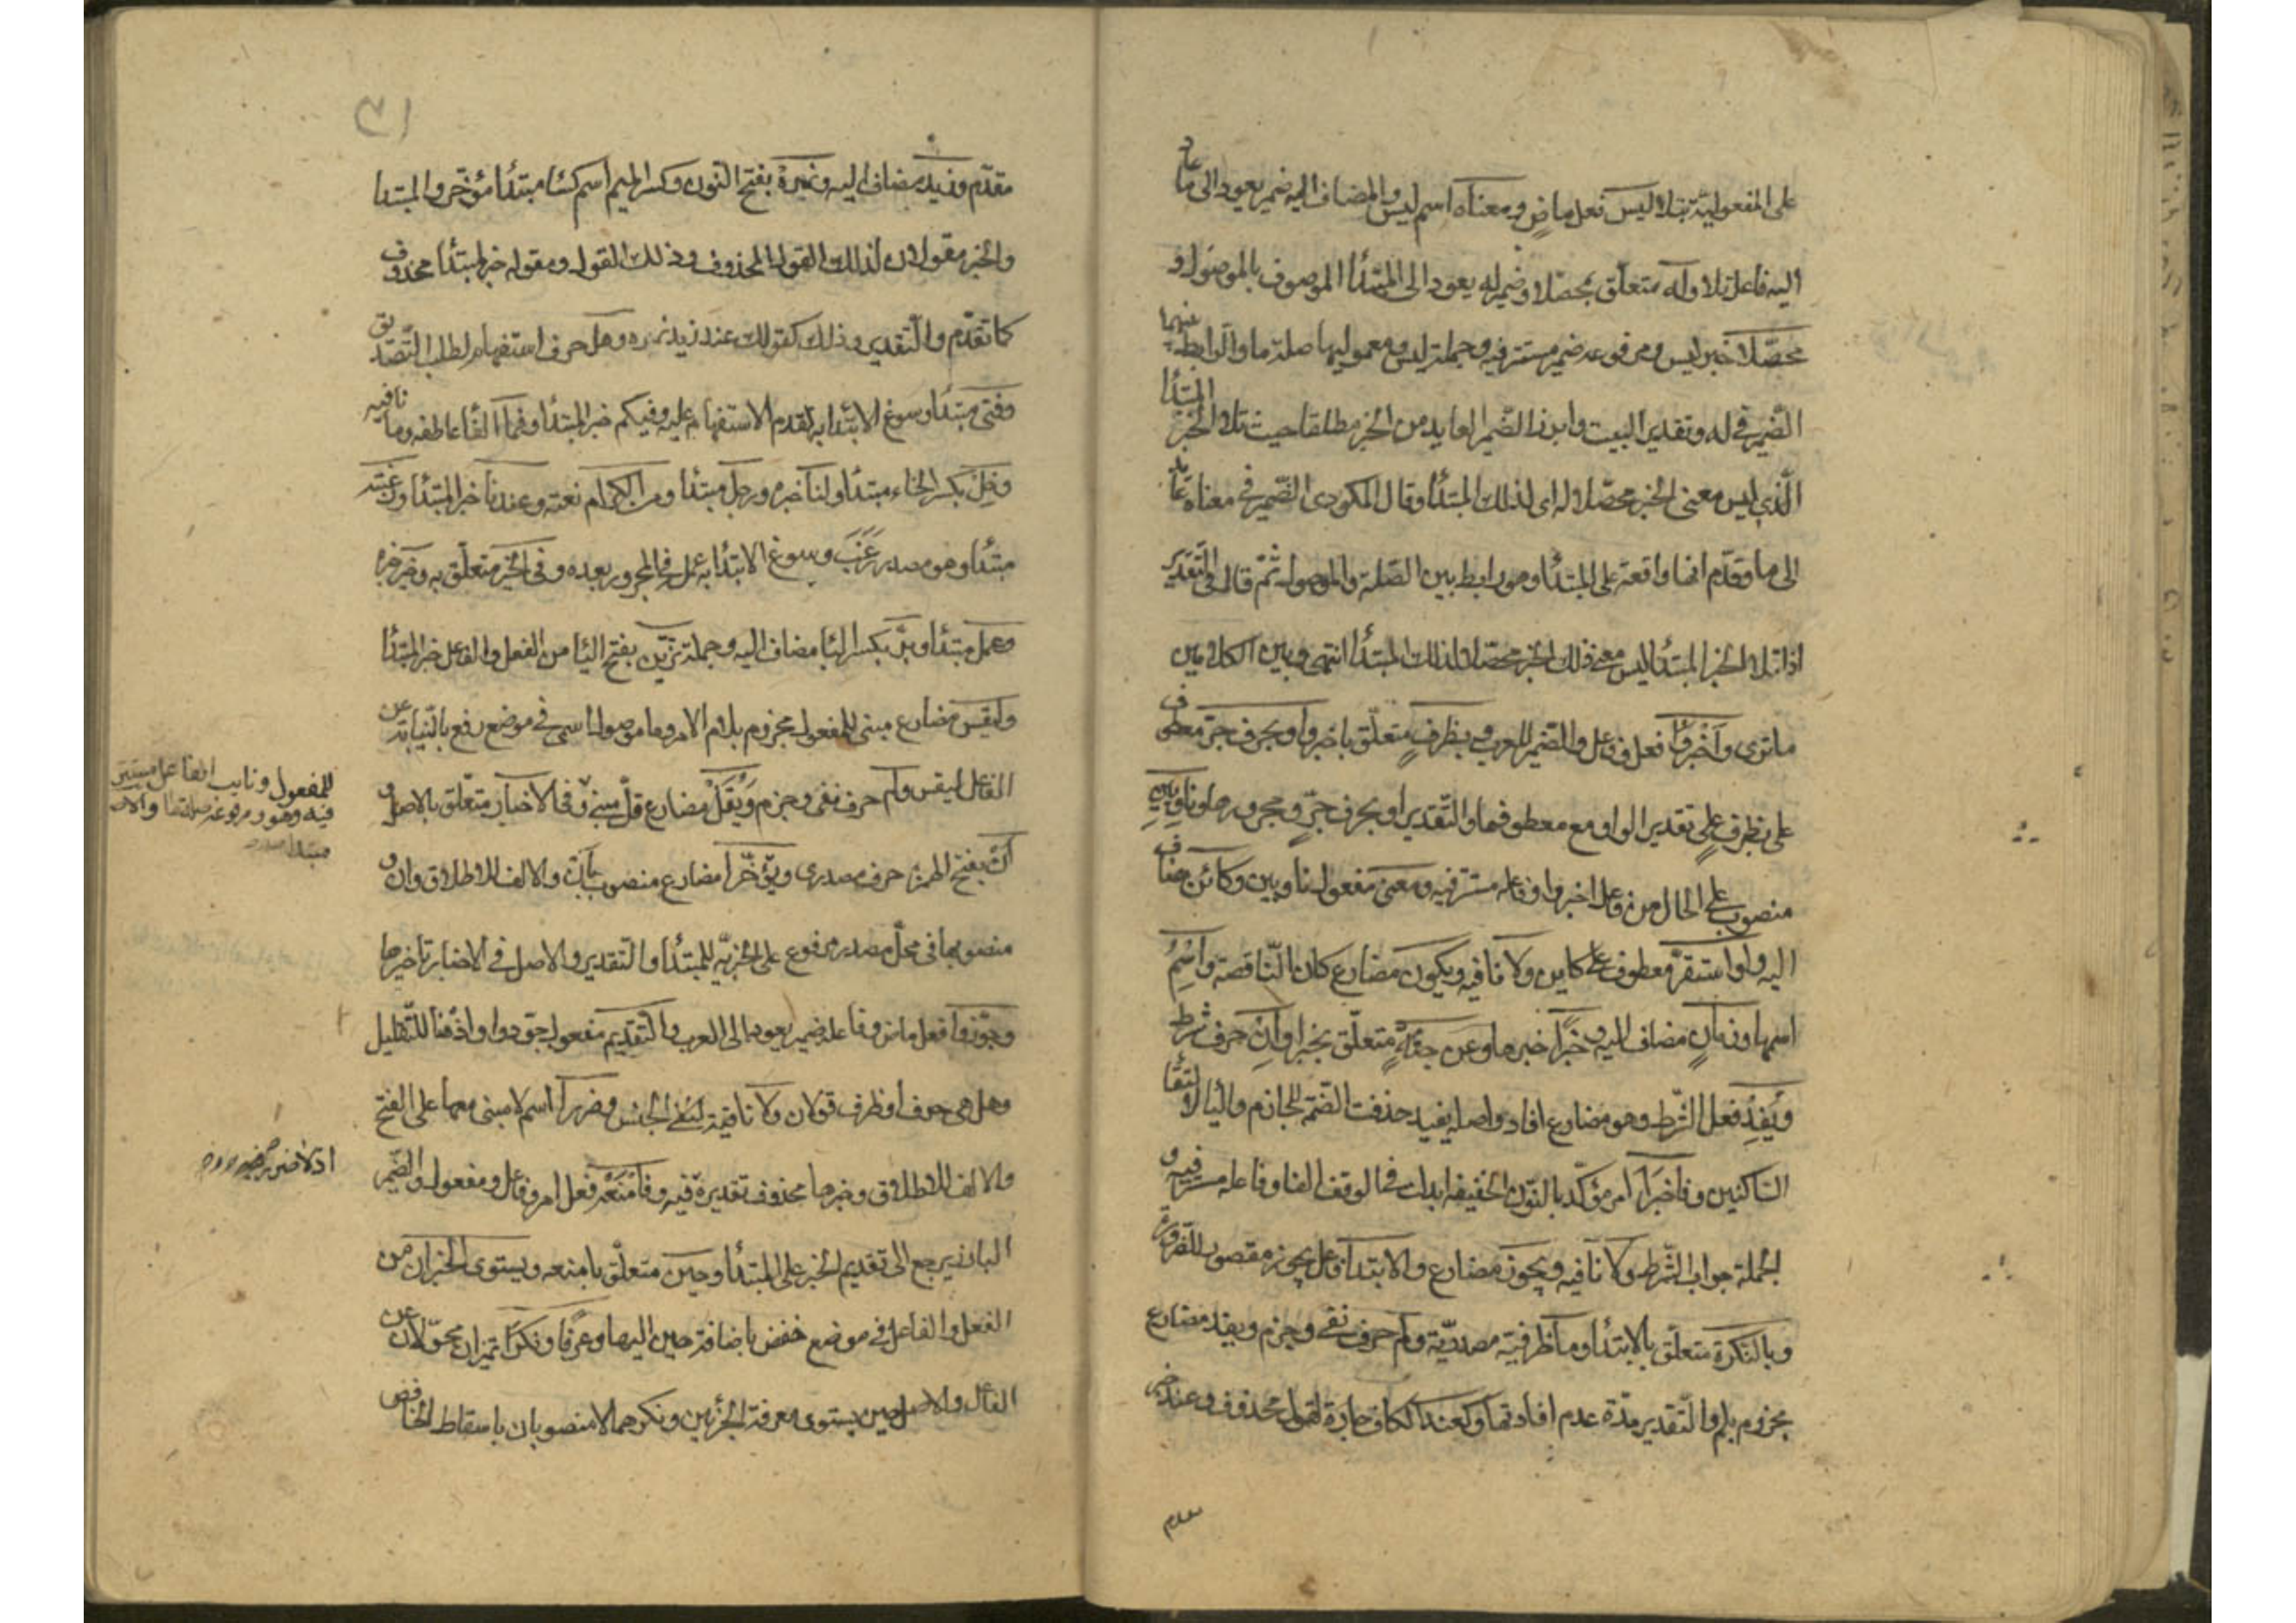 على المفعولية بتلا ليس فعل ماض ومعناه اسم ليس والمضاف اليه ضمير يعود الى ما عاد
اليه فاعل تلا وله متعلق بمحصلا وضمير له يعود الى المبتدأ الموصوف بالموصول و
محصلا خبر ليس ومرفوعه ضمير مستتر فيه وجملة ليس ومعموليها صلة ما والرابط بينهما
الضمير في له وتقدير البيت وابرز الضمير العايد من الخبر مطلقا حيث تلا الخبر المبتدأ
الذي ليس معنى الخبر محصلا له اى لذلك المبتدأ وقال المكودى الضمير في معناه عايد
الى ما وقدّم انها واقعة على المبتدأ وهو رابط بين الصلة والموصول ثم قال في التقدير
اذا تلا الخبر المبتدأ ليس معنى ذلك الخبر محصلا لذلك المبتدأ انتهى وبين الكلامين
ما ترى وأخبروا فعل وفاعل والضمير للعرب وبظرف متعلق باخبروا وبحرف جر معطوف
على بظرف على تقدير الواو مع معطوفها والتقدير او بحرف جر ومجرورها وناوين
منصوب على الحال من فاعل اخبروا وفاعله مستتر فيه ومعنى مفعول ناوين وكائن مضاف
اليه واو استقر معطوف على كاين ولا نافيه ويكون مضارع كان الناقصة واسم
اسمها وزمان مضاف اليه وخبرا خبرها وعن جثة متعلق بخبرا وان حرف شرط
ويفد فعل الشرط وهو مضارع افاد واصله يفيد حذفت الضمة للجازم واليا لالتقا
الساكنين وفاخبرا امر مؤكد بالنون الخفيفه ابدلت في الوقف الفا وفاعله مستتر فيه و
الجملة جواب الشرط ولا نافيه ويجوز مضارع والابتدا فاعل يجوز مقصور للضرورة
وبالنكرة متعلق بالابتدأ وما ظرفية مصدرية ولم حرف نفى وجزم ويفد مضارع
مجزوم بلم والتقدير مدة عدم افادتها وكعند الكاف جارة لقول محذوف وعند خبر
مقدم
٣١
مقدّم وزيد مضاف اليه ونمرة بفتح النون وكسر الميم اسم كسا مبتدأ مؤخر والمبتدا
والخبر مقولان لذلك القول المحذوف وذلك القول ومقوله خبر لمبتدأ محذوف
كما تقدّم والتقدير وذلك كقولك عند زيد نمره وهل حرف استفهام لطلب التصديق
وفتى مبتدأ وسوغ الابتدا به تقدم الاستفهام عليه وفيكم خبر المبتدأ وفما الفا عاطفه وما نافيه
وخل بكسر الخاء مبتدأ ولنا خبره ورجل مبتدأ ومن الكرام نعته وعندنا خبر المبتدأ ورغبة
مبتدأ وهو مصدر رغب وسوغ الابتدأ به عمله في المجرور بعده وفى الخير متعلق به وخير خبره
وعمل مبتدأ وبر بكسر البا مضاف اليه وجملة يزين بفتح اليا من الفعل والفاعل خبر المبتدأ
وليقس مضارع مبنى للمفعول مجزوم بلام الامر وما موصول اسمى في موضع رفع بالنيابة عن
الفاعل ليقس ولم حرف نفى وجزم ويقل مضارع قل مبنى وفى الاخبار متعلق بالاصل و
ان بفتح الهمزة حرف مصدرى ويؤخرا مضارع منصوب بأن والالف للاطلاق وان و
منصوبها في محل مصدر مرفوع على الخبرية للمبتدأ والتقدير والاصل في الاخبار تاخيرها
وجوّزوا فعل ماض وفاعله ضمير يعود الى العرب والتقديم مفعول جوزوا واذ هنا للتعليل
وهل هى حرف او ظرف قولان ولا نافية لنفى الجنس وضررا اسم لا مبنى معها على الفتح
والالف للاطلاق وخبرها محذوف تقديره فيه وفامنعه فعل امر وفاعل ومفعول والضمير
البارز يرجع الى تقديم الخبر على المبتدأ وحين متعلق بامنعه ويستوى الخبران من
الفعل والفاعل في موضع خفض باضافة حين اليها وعرفا ونكرا تميزان محولان عن
الفاعل والاصل حين يستوى معرفة الجزئين ونكرهما لا منصوبان باسقاط الخافض
للمفعول ونايب الفاعل مستتر
فيه وهو ومرفوعه صلة ما والاصل
مبتدا
اذ لا ضرر